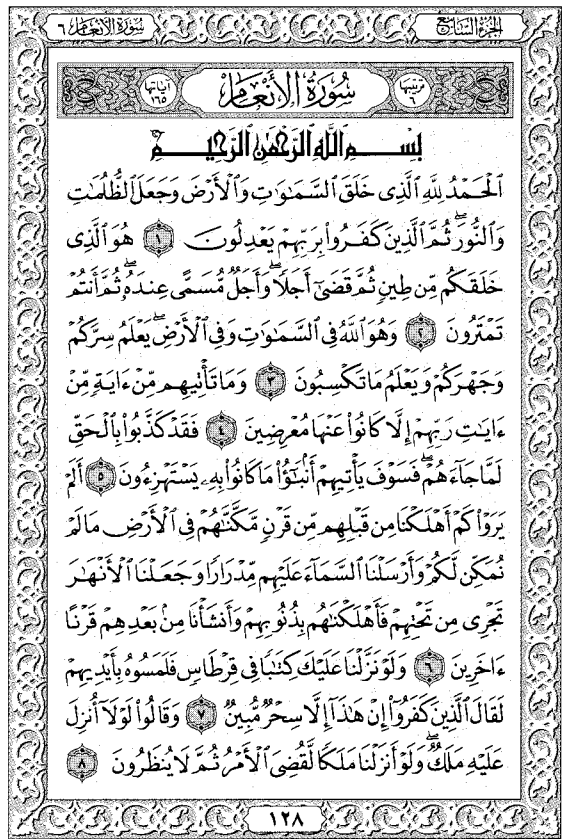 الجزء السابع
سورة الأنعام ٦
ترتيبها ٦
سورة الأنعام
آياتها ١٦٥
بسم الله الرحمن الرحيم
ٱلْحَمْدُ لِلَّهِ ٱلَّذِى خَلَقَ ٱلسَّمَـٰوَٰتِ وَٱلْأَرْضَ وَجَعَلَ ٱلظُّلُمَـٰتِ
وَٱلنُّورَ ۖ ثُمَّ ٱلَّذِينَ كَفَرُوا۟ بِرَبِّهِمْ يَعْدِلُونَ ١ هُوَ ٱلَّذِى
خَلَقَكُم مِّن طِينٍ ثُمَّ قَضَىٰٓ أَجَلًا ۖ وَأَجَلٌ مُّسَمًّى عِندَهُۥ ۖ ثُمَّ أَنتُمْ
تَمْتَرُونَ ٢ وَهُوَ ٱللَّهُ فِى ٱلسَّمَـٰوَٰتِ وَفِى ٱلْأَرْضِ ۖ يَعْلَمُ سِرَّكُمْ
وَجَهْرَكُمْ وَيَعْلَمُ مَا تَكْسِبُونَ ٣ وَمَا تَأْتِيهِم مِّنْ ءَايَةٍ مِّنْ
ءَايَـٰتِ رَبِّهِمْ إِلَّا كَانُوا۟ عَنْهَا مُعْرِضِينَ ٤ فَقَدْ كَذَّبُوا۟ بِٱلْحَقِّ
لَمَّا جَآءَهُمْ ۖ فَسَوْفَ يَأْتِيهِمْ أَنۢبَـٰٓؤُا۟ مَا كَانُوا۟ بِهِۦ يَسْتَهْزِءُونَ ٥ أَلَمْ
يَرَوْا۟ كَمْ أَهْلَكْنَا مِن قَبْلِهِم مِّن قَرْنٍ مَّكَّنَّـٰهُمْ فِى ٱلْأَرْضِ مَا لَمْ
نُمَكِّن لَّكُمْ وَأَرْسَلْنَا ٱلسَّمَآءَ عَلَيْهِم مِّدْرَارًا وَجَعَلْنَا ٱلْأَنْهَـٰرَ
تَجْرِى مِن تَحْتِهِمْ فَأَهْلَكْنَـٰهُم بِذُنُوبِهِمْ وَأَنشَأْنَا مِنۢ بَعْدِهِمْ قَرْنًا
ءَاخَرِينَ ٦ وَلَوْ نَزَّلْنَا عَلَيْكَ كِتَـٰبًا فِى قِرْطَاسٍ فَلَمَسُوهُ بِأَيْدِيهِمْ
لَقَالَ ٱلَّذِينَ كَفَرُوٓا۟ إِنْ هَـٰذَآ إِلَّا سِحْرٌ مُّبِينٌ ٧ وَقَالُوا۟ لَوْلَآ أُنزِلَ
عَلَيْهِ مَلَكٌ ۖ وَلَوْ أَنزَلْنَا مَلَكًا لَّقُضِىَ ٱلْأَمْرُ ثُمَّ لَا يُنظَرُونَ ٨
١٢٨